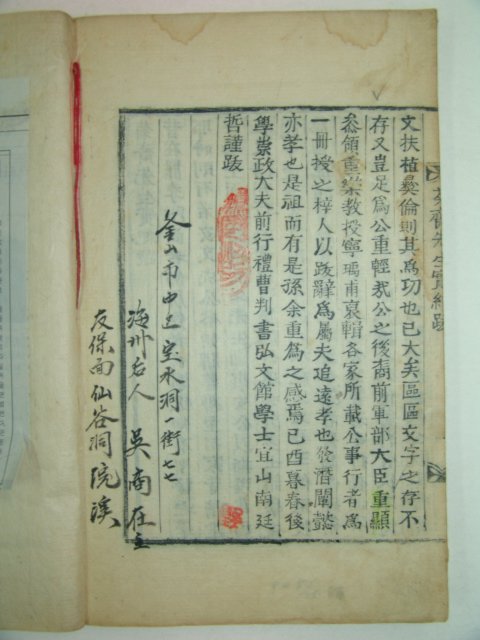 齋先生實紀跋
文扶植彝倫則其爲功也已大矣區區文字之存不
存又豈足爲公重輕哉公之後裔前軍部大臣重顯
叅領重樂教授寧瑀甫裒輯各家所載公事行者爲
一冊授之梓人以跋辭爲屬夫追遠孝也發潛闡懿
亦孝也是祖而有是孫余重爲之感焉己酉暮春後
學崇政大夫前行禮曹判書弘文館學士宜山南廷
哲謹跋
釜山市中區宝水洞一街七七
海州后人 吳 在
友保面仙谷洞 院溪